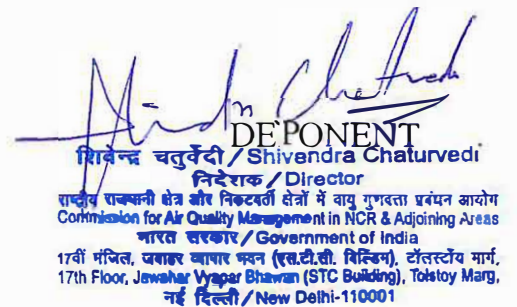 DEPONENT
शिवेन्द्र चतुर्वेदी / Shivendra Chaturvedi
निदेशक / Director
राष्ट्रीय राजधानी क्षेत्र और निकटवर्ती क्षेत्रों में वायु गुणवत्ता प्रबंधन आयोग
Commission for Air Quality Management in NCR & Adjoining Areas
भारत सरकार / Government of India
17वीं मंजिल, जवाहर व्यापार भवन (एस.टी.सी. बिल्डिंग), टॉलस्टॉय मार्ग,
17th Floor, Jawahar Vyapar Bhawan (STC Building), Tolstoy Marg,
नई दिल्ली / New Delhi-110001